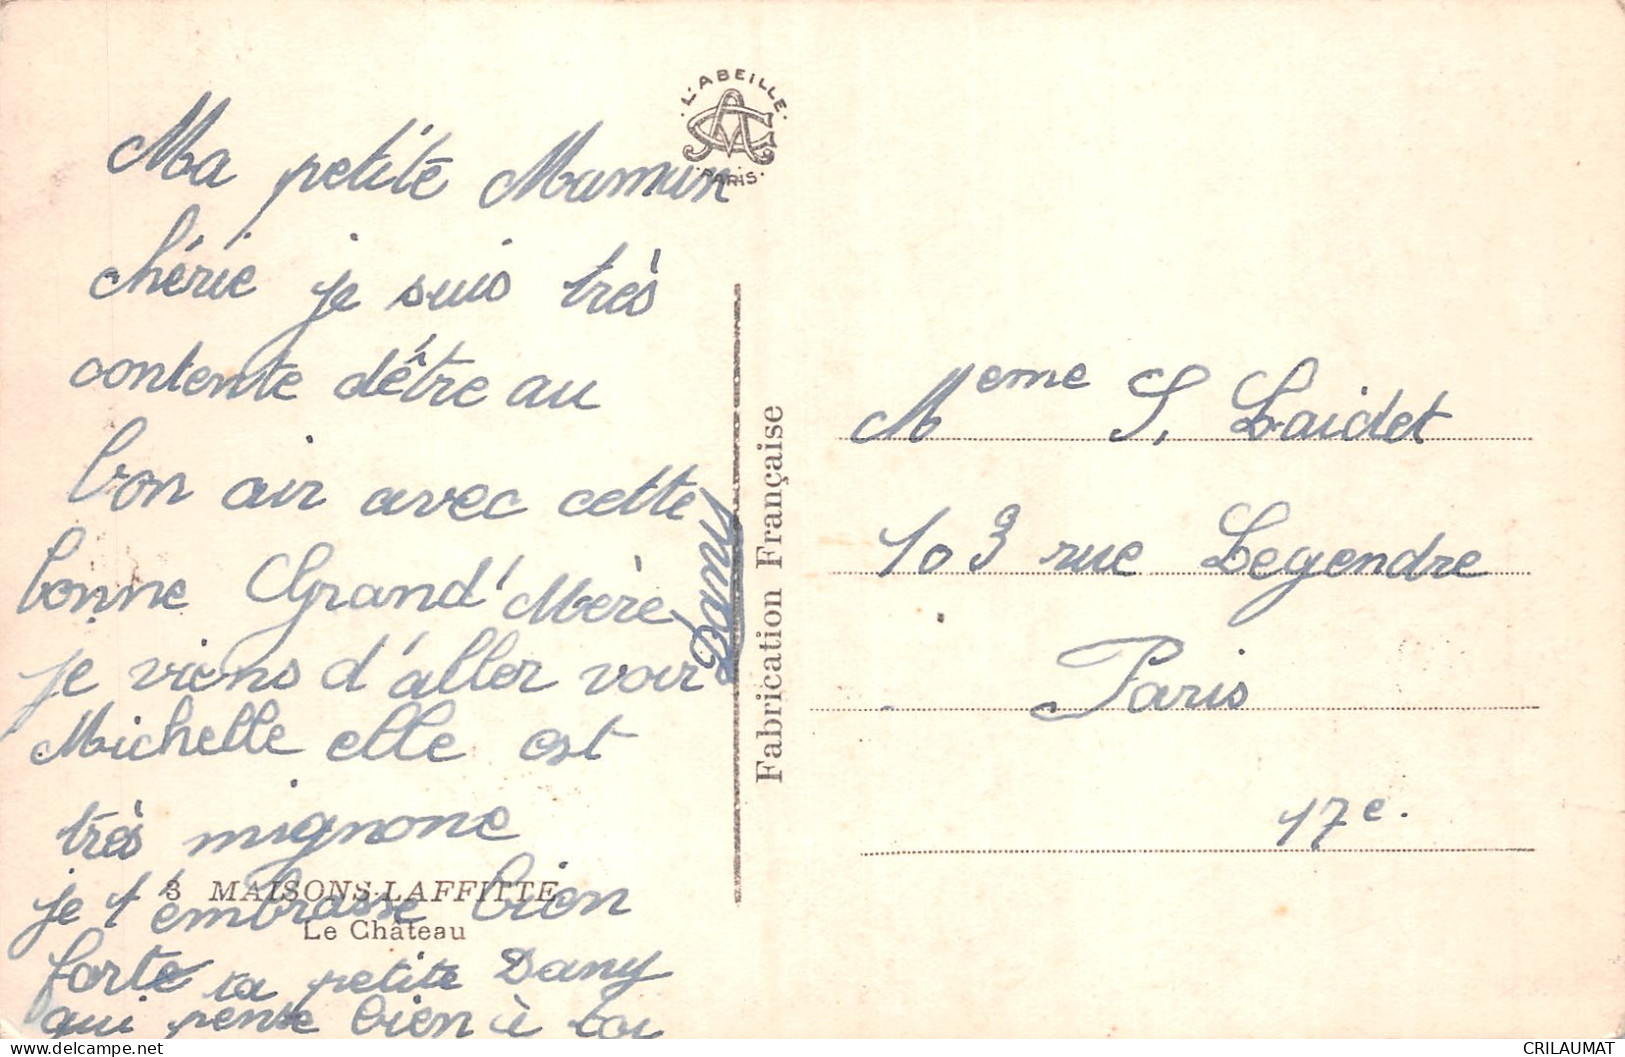 L'ABEILLE
PARIS
Ma petite Maman
chérie je suis très
contente d'être au
bon air avec cette
bonne Grand'Mère
je viens d'aller voir
Michelle elle est
très mignone
je t'embrasse bien
forte ta petite Dany
qui pense bien à toi
Dany
3 MAISONS-LAFFITTE
Le Château
Fabrication Française
Meme S. Laidet
103 rue Legendre
Paris
17e.
CRILAUMAT